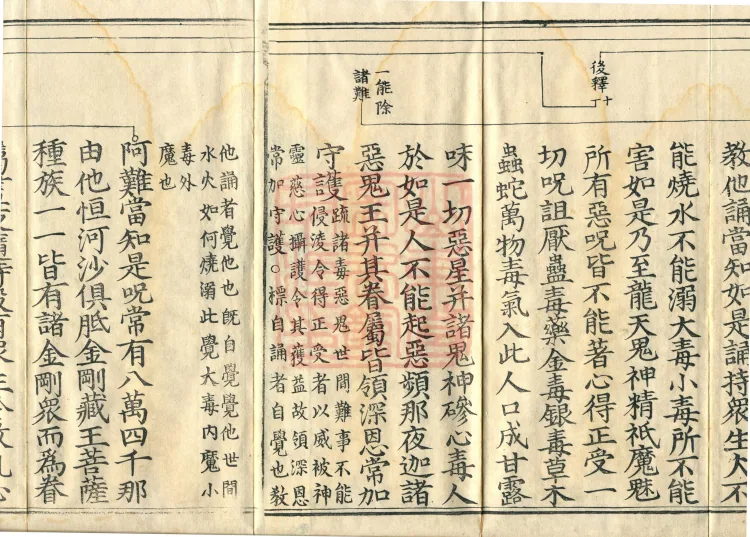 後釋
教他誦當知如是誦持衆生火不
能燒水不能溺大毒小毒所不能
害如是乃至龍天鬼神精祇魔魅
所有惡呪皆不能著心得正受一
切呪詛厭蠱毒藥金毒銀毒草木
蟲蛇萬物毒氣入此人口成甘露
一能除
諸難
味一切惡星并諸鬼神磣心毒人
於如是人不能起惡頻那夜迦諸
惡鬼王并其眷屬皆領深恩常加
守護
疏諸毒惡鬼世間難事不能
侵淩令得正受者以威被神
靈慈心攝護令其獲益故領深恩
常加守護。標自誦者自覺也教
他誦者覺他也旣自覺覺他世間
水火如何燒溺此覺大毒內魔小
毒外
魔也
阿難當知是呪常有八萬四千那
由他恒河沙俱胝金剛藏王菩薩
種族一一皆有諸金剛衆而爲眷